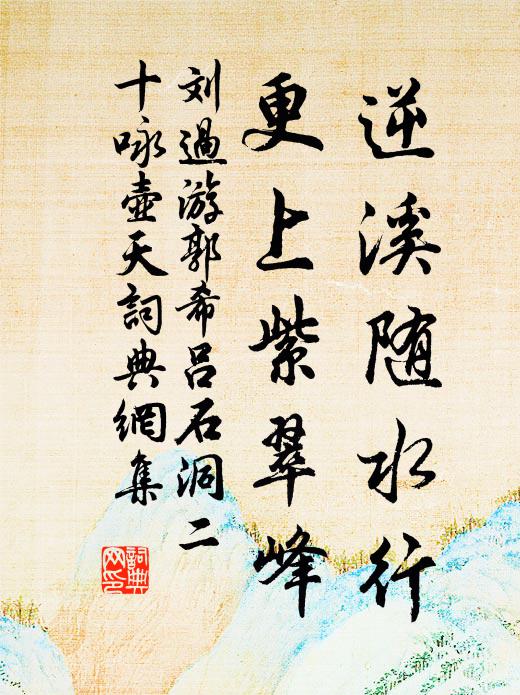 逆溪随水行
更上紫翠峰
刘過游郭希吕石洞二
十咏壺天詞典網集
詞典网印